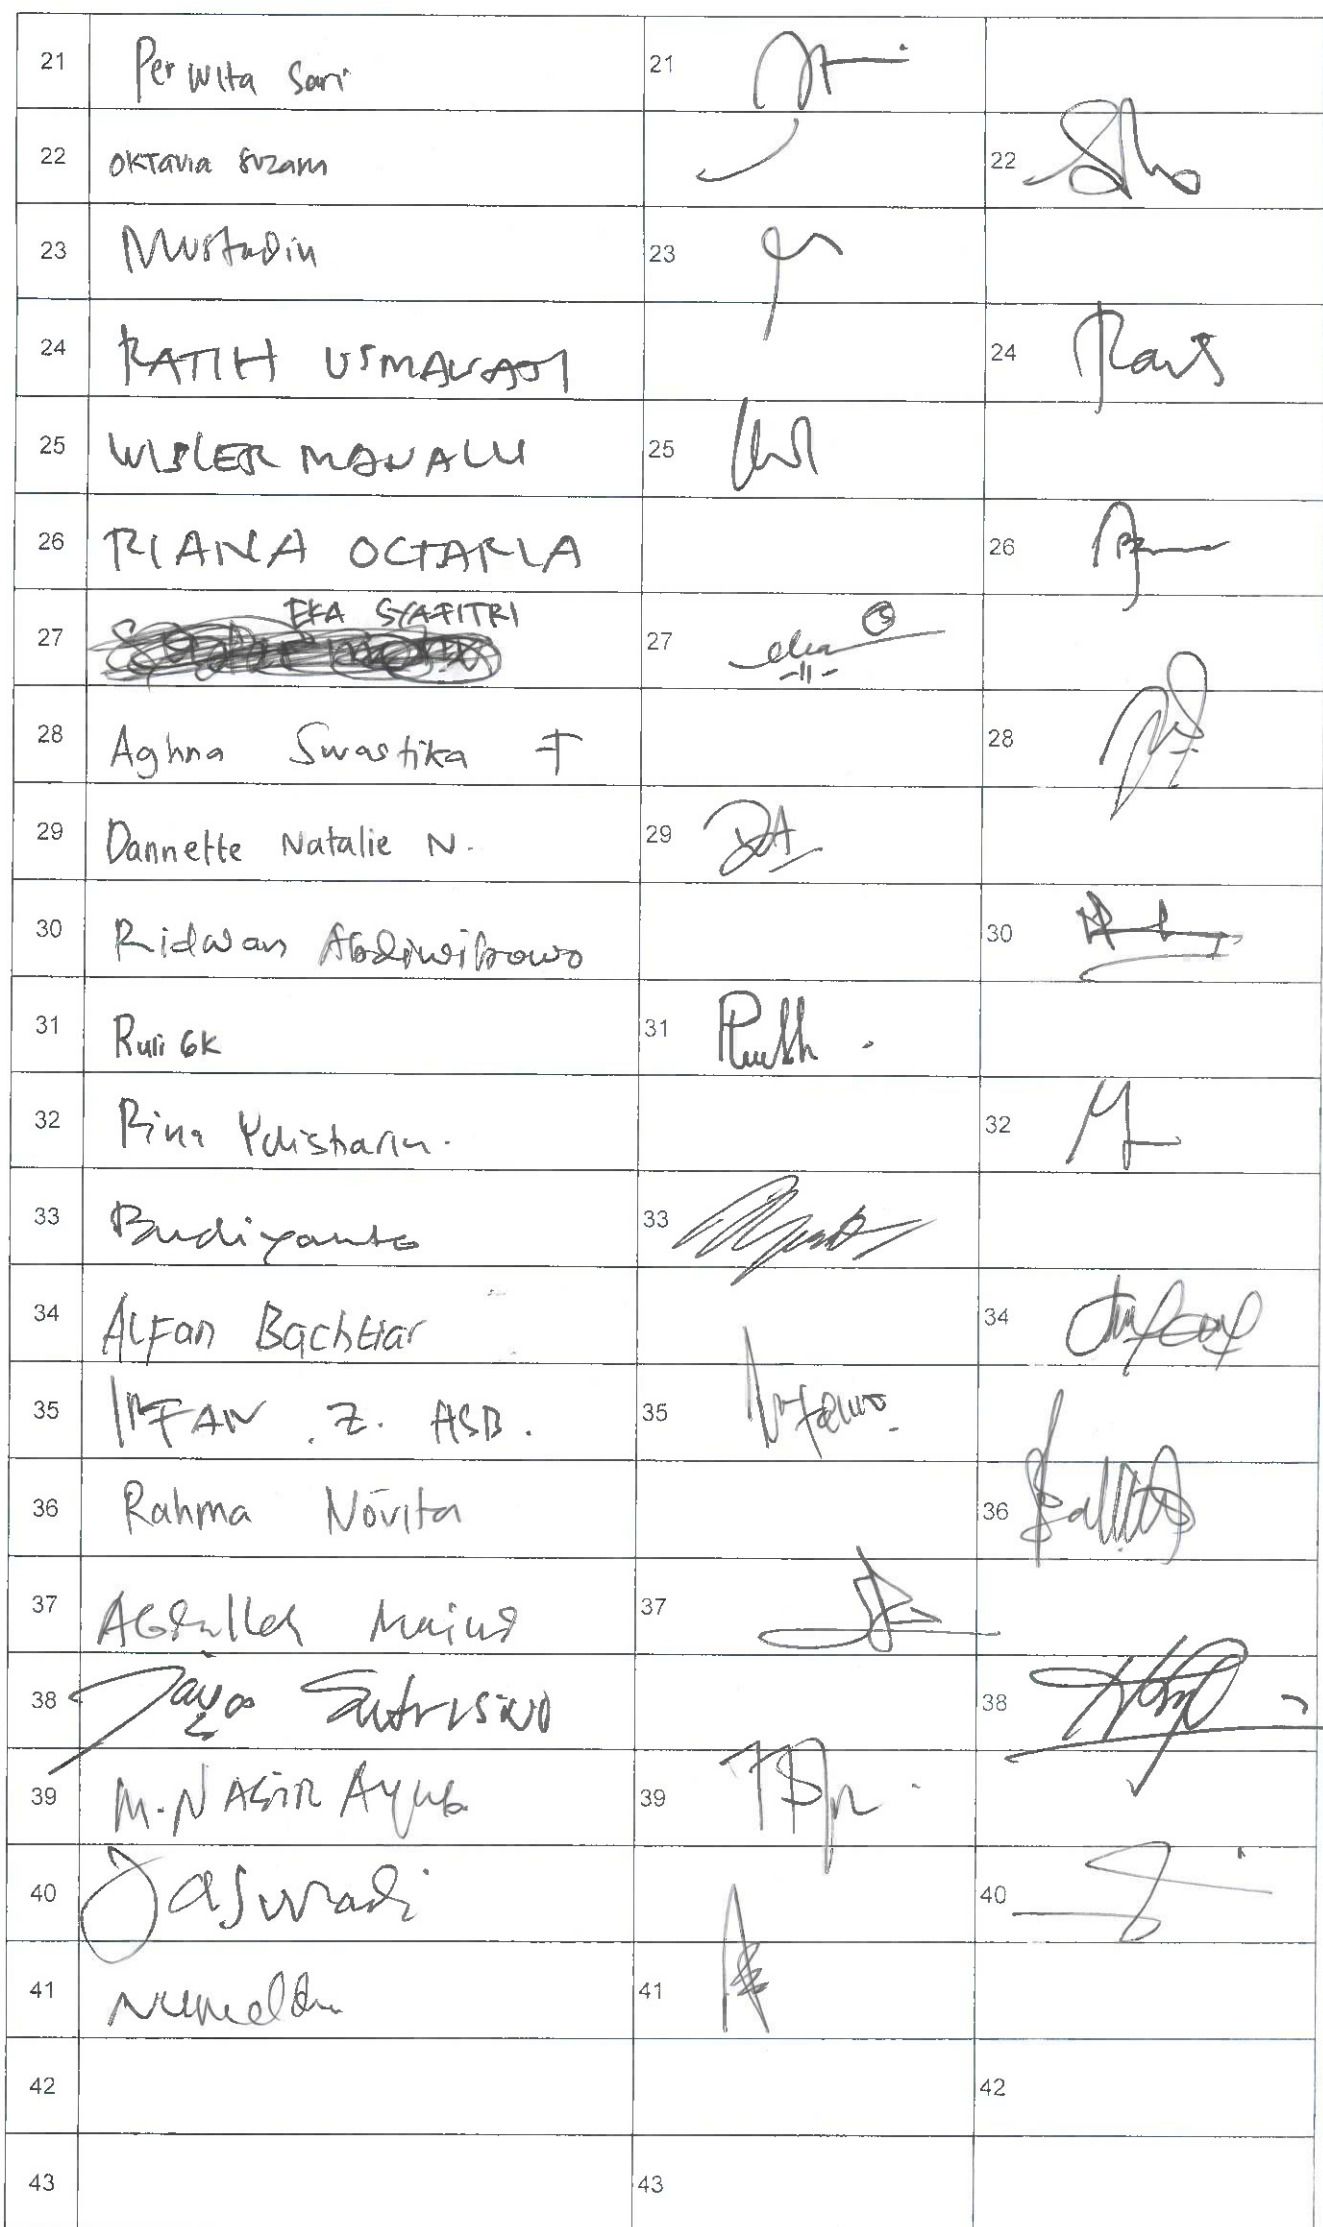 21 Perwita Sari 21
22 Oktavia Suzam 22
23 Mustadin 23
24 RATIH 24
25 WISLER MANALU 25
26 RIANA OCTARIA 26
27 EKA SYAFITRI 27
28 Aghna Swastika F 28
29 Dannette Natalie N. 29 DA
30 Ridwan Abdiwibowo 30
31 Ruri GK 31
32 Rina 32
33 Budiyanto 33
34 ALFan Bachtiar 34
35 IRFAN . Z. ASB. 35
36 Rahma Novita 36
37 Abdullah 37
38 Sutrisno 38
39 M. NASIR Ayub 39
40 Jaswadi 40
41 41
42 42
43 43